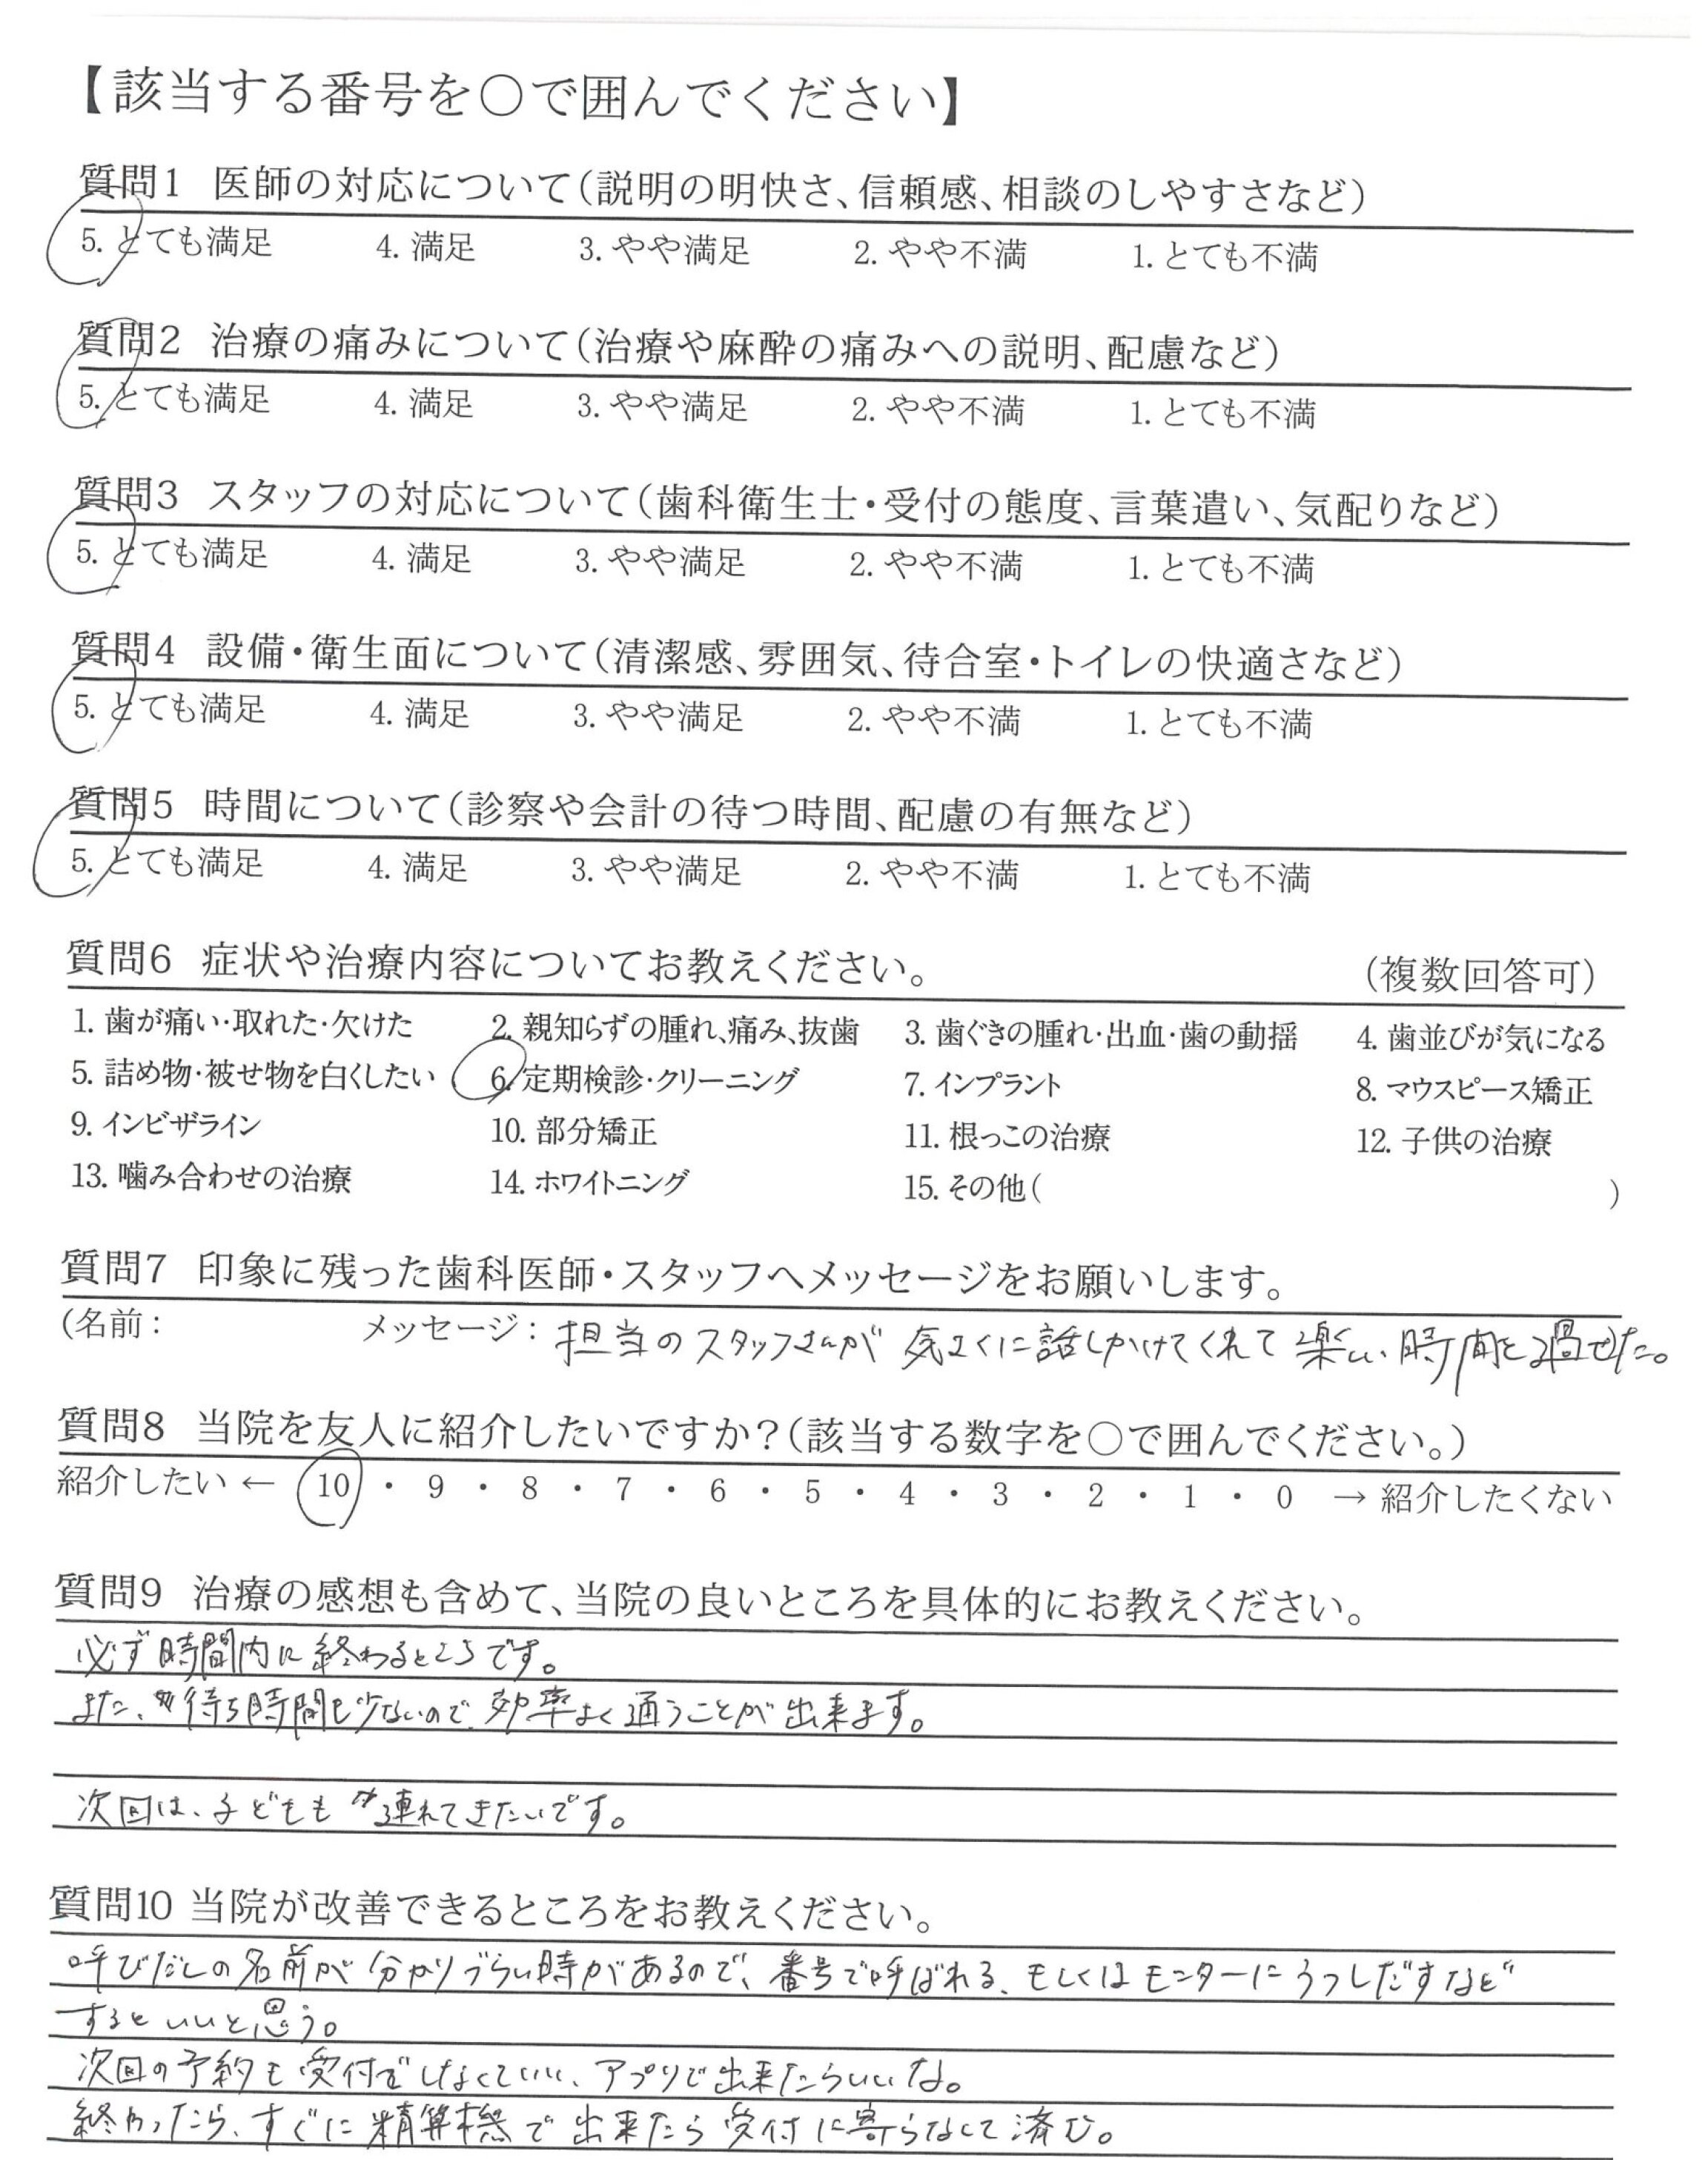 【該当する番号を○で囲んでください】
質問1 医師の対応について(説明の明快さ、信頼感、相談のしやすさなど)
5. とても満足 4. 満足 3. やや満足 2. やや不満 1. とても不満
質問2 治療の痛みについて(治療や麻酔の痛みへの説明、配慮など)
5. とても満足 4. 満足 3. やや満足 2. やや不満 1. とても不満
質問3 スタッフの対応について(歯科衛生士・受付の態度、言葉遣い、気配りなど)
5. とても満足 4. 満足 3. やや満足 2. やや不満 1. とても不満
質問4 設備・衛生面について(清潔感、雰囲気、待合室・トイレの快適さなど)
5. とても満足 4. 満足 3. やや満足 2. やや不満 1. とても不満
質問5 時間について(診察や会計の待つ時間、配慮の有無など)
5. とても満足 4. 満足 3. やや満足 2. やや不満 1. とても不満
質問6 症状や治療内容についてお教えください。 (複数回答可)
1. 歯が痛い・取れた・欠けた 2. 親知らずの腫れ、痛み、抜歯 3. 歯ぐきの腫れ・出血・歯の動揺 4. 歯並びが気になる
5. 詰め物・被せ物を白くしたい 6. 定期検診・クリーニング 7. インプラント 8. マウスピース矯正
9. インビザライン 10. 部分矯正 11. 根っこの治療 12. 子供の治療
13. 噛み合わせの治療 14. ホワイトニング 15. その他( )
質問7 印象に残った歯科医師・スタッフへメッセージをお願いします。
(名前: メッセージ: 担当のスタッフさんが 気さくに話しかけてくれて 楽しい時間を過せた。
質問8 当院を友人に紹介したいですか?(該当する数字を○で囲んでください。)
紹介したい ← 10 ・ 9 ・ 8 ・ 7 ・ 6 ・ 5 ・ 4 ・ 3 ・ 2 ・ 1 ・ 0 → 紹介したくない
質問9 治療の感想も含めて、当院の良いところを具体的にお教えください。
必ず時間内に終わるところです。
また、待ち時間も少ないので、効率よく通うことが出来ます。
次回は、子どもも連れてきたいです。
質問10 当院が改善できるところをお教えください。
呼びだしの名前が分かりづらい時があるので、番号で呼ばれる、もしくはモニターにうつしだすなど
するといいと思う。
次回の予約も受付でしなくていい、アプリで出来たらいいな。
終わったら、すぐに精算機で出来たら受付に寄らなくて済む。